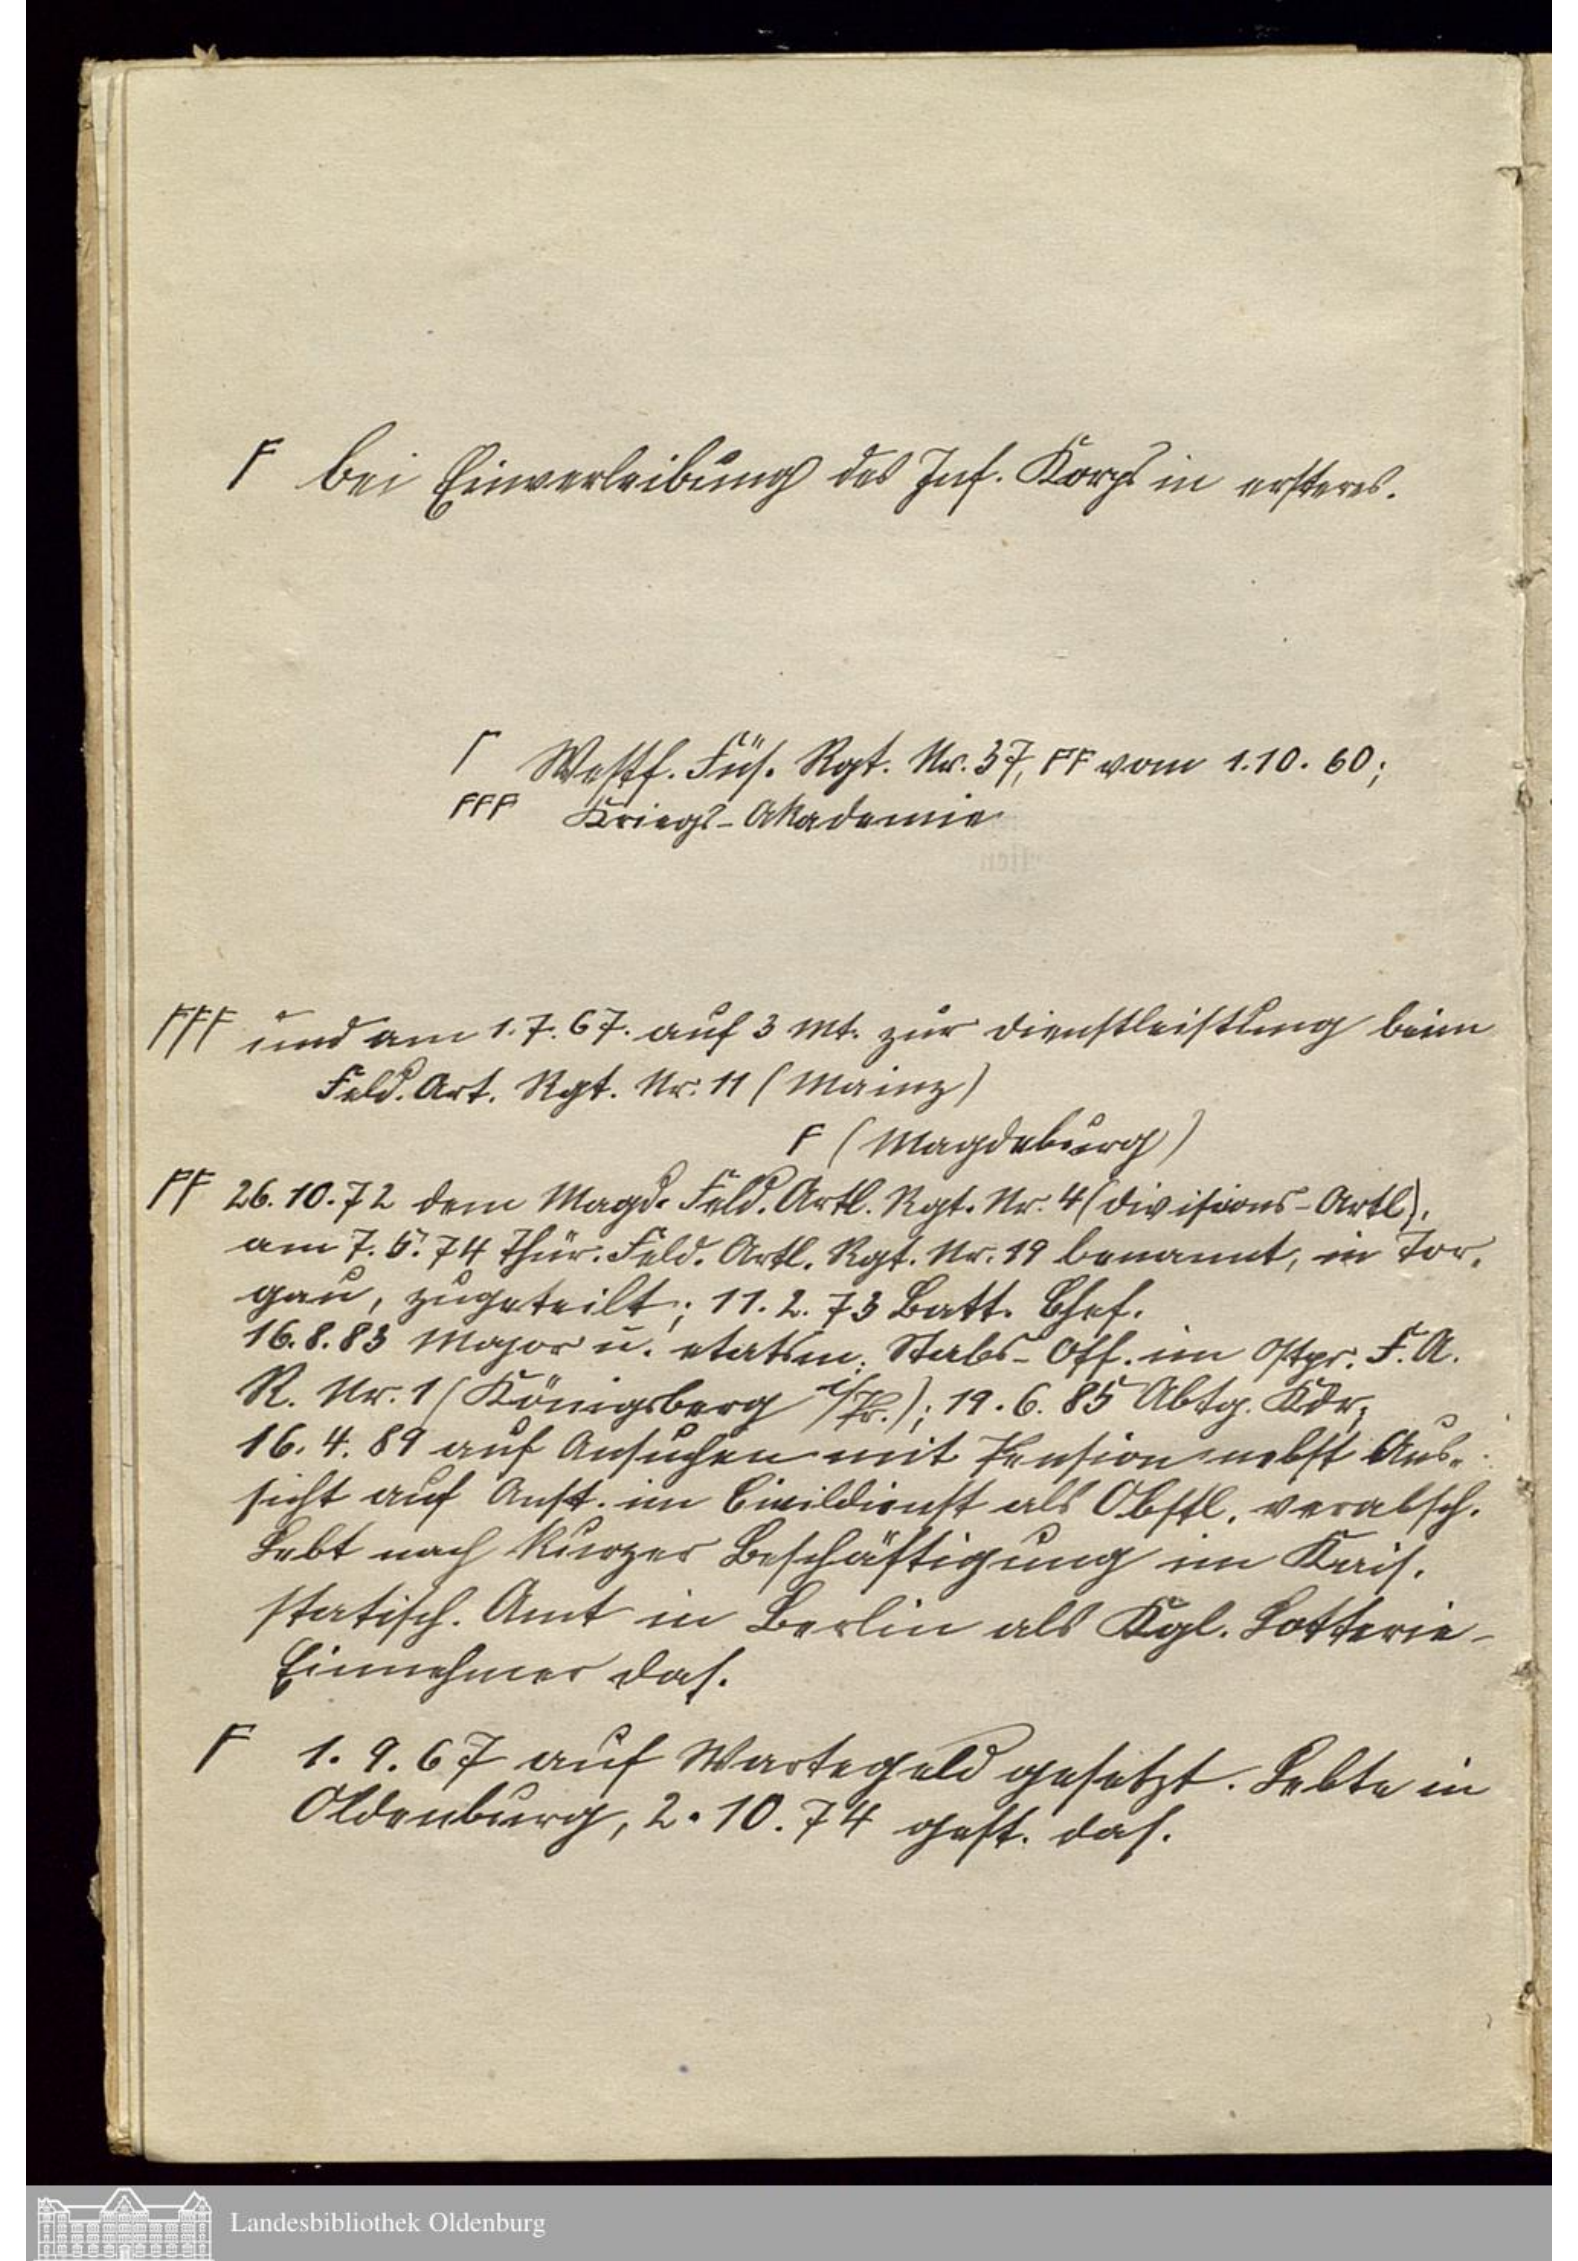 F bei Einverleibung des Inf. Korps in ersteres.
Γ Westf. Füs. Rgt. Nr. 37, FF vom 1.10.60;
FFF Kriegs-Akademie
FFF und am 1.7.67. auf 3 Mt. zur Dienstleistung beim
Feld. Art. Rgt. Nr. 11 (Mainz)
F (Magdeburg)
FF 26.10.72 dem Magd. Feld. Artl. Rgt. Nr. 4 (Divisions-Artl),
am 7.5.74 Thür. Feld. Artl. Rgt. Nr. 19 benannt, in Tor-
gau, zugeteilt; 11.2.73 Batt. Chef.
16.8.83 Major u. etatsm. Stabs-Off. im Ostpr. F.A.
R. Nr. 1 (Königsberg i/Pr.); 19.6.85 Abtg. Kdr;
16.4.89 auf Ansuchen mit Pension nebst Aus-
sicht auf Anst. im Civildienst als Obstl. verabsch.
Lebt nach kurzer Beschäftigung im Kais.
statistisch. Amt in Berlin als Kgl. Lotterie-
Einnehmer das.
F 1.9.67 auf Wartegeld gesetzt. Lebte in
Oldenburg, 2.10.74 gest. das.
Landesbibliothek Oldenburg